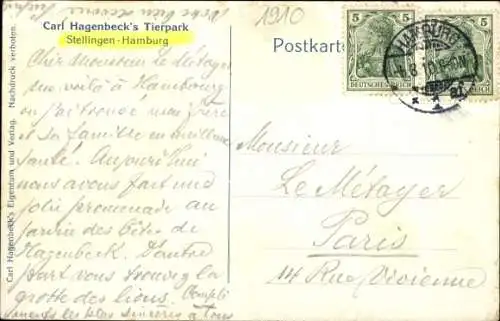 1910
Carl Hagenbeck's Tierpark
Stellingen-Hamburg
Postkarte
5 5
5 5
DEUTSCHES REICH
HAMBURG
Cher Monsieur Le Métayer
voilà à Hambourg
où j'ai trouvé mon frère
et sa famille en meilleure
santé. Aujourd'hui
nous avons fait une
jolie promenade au
jardin des bêtes de
Hagenbeck. D'autre
part vous trouverez la
grotte des lions. Compli
ments les plus sincères à tous
Monsieur
Le Métayer
Paris
14 Rue Vivienne
Carl Hagenbeck's Eigentum und Verlag. Nachdruck verboten.